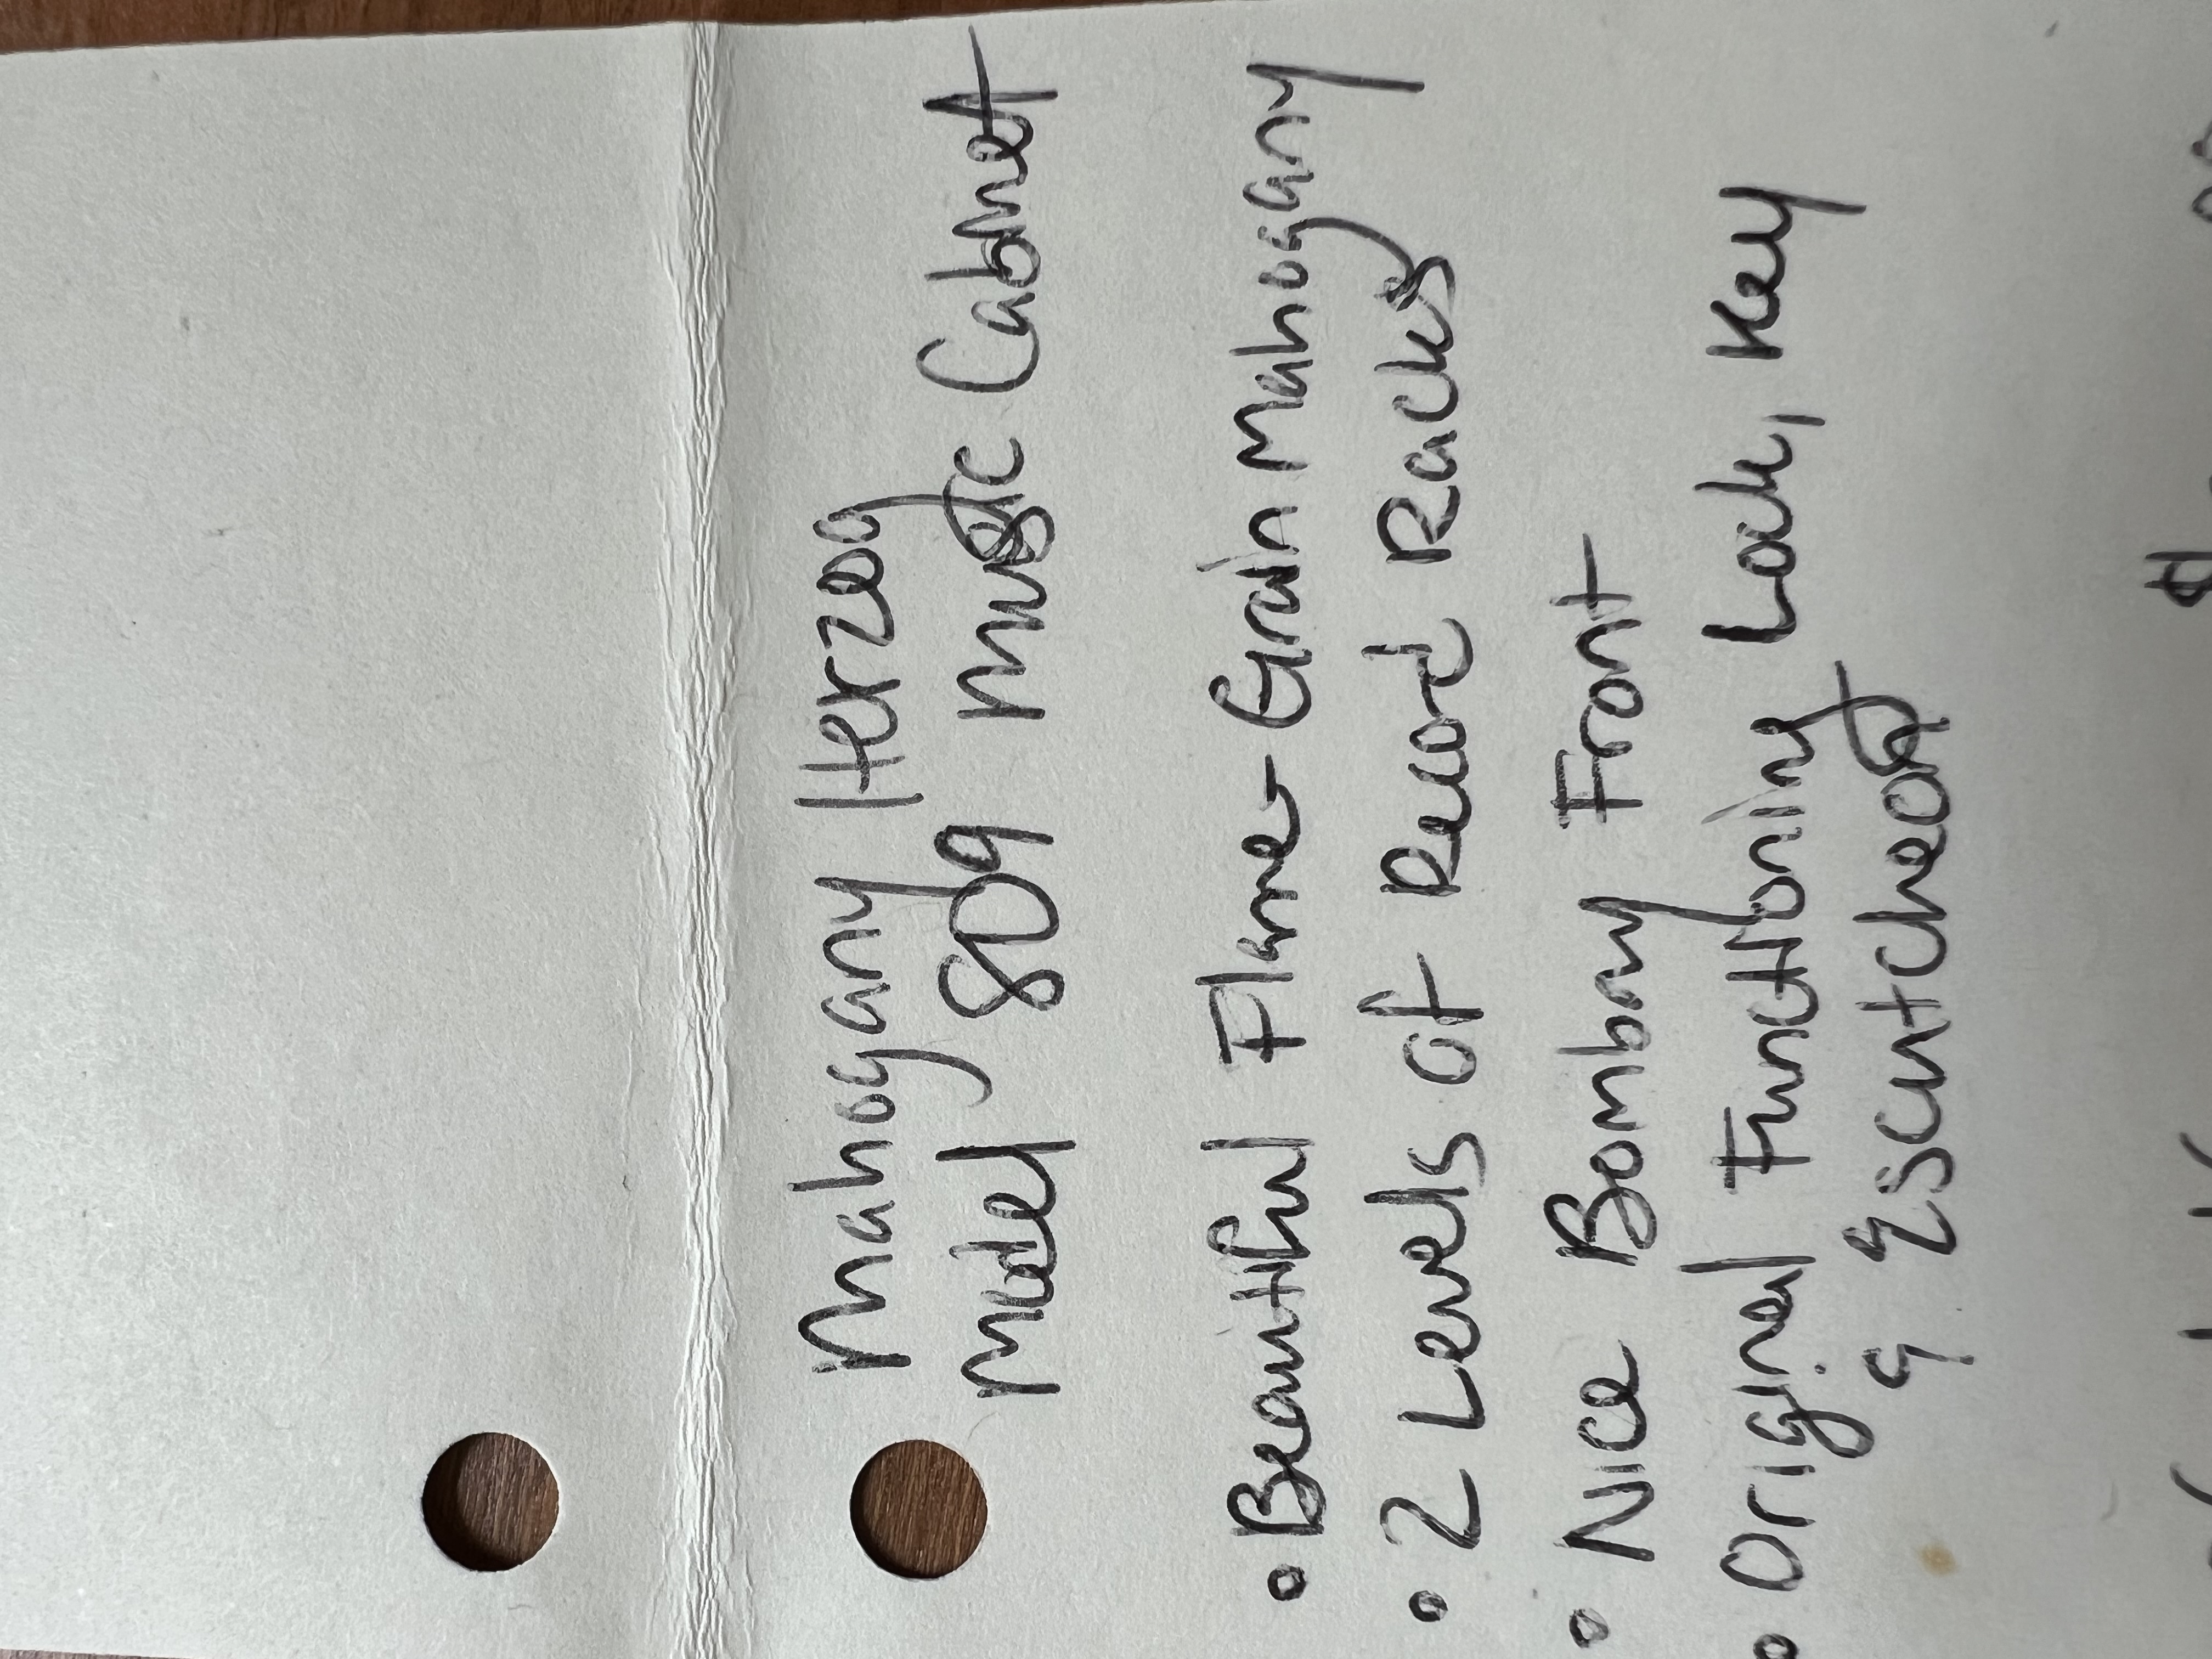 Mahogany Herzog
Model 809 Music Cabnet
• Beautiful Flame-Grain Mahogany
• 2 Levels of Record Racks
• Nice Bombay Front
• Original Functioning Lock, Key
& Escutcheon
$